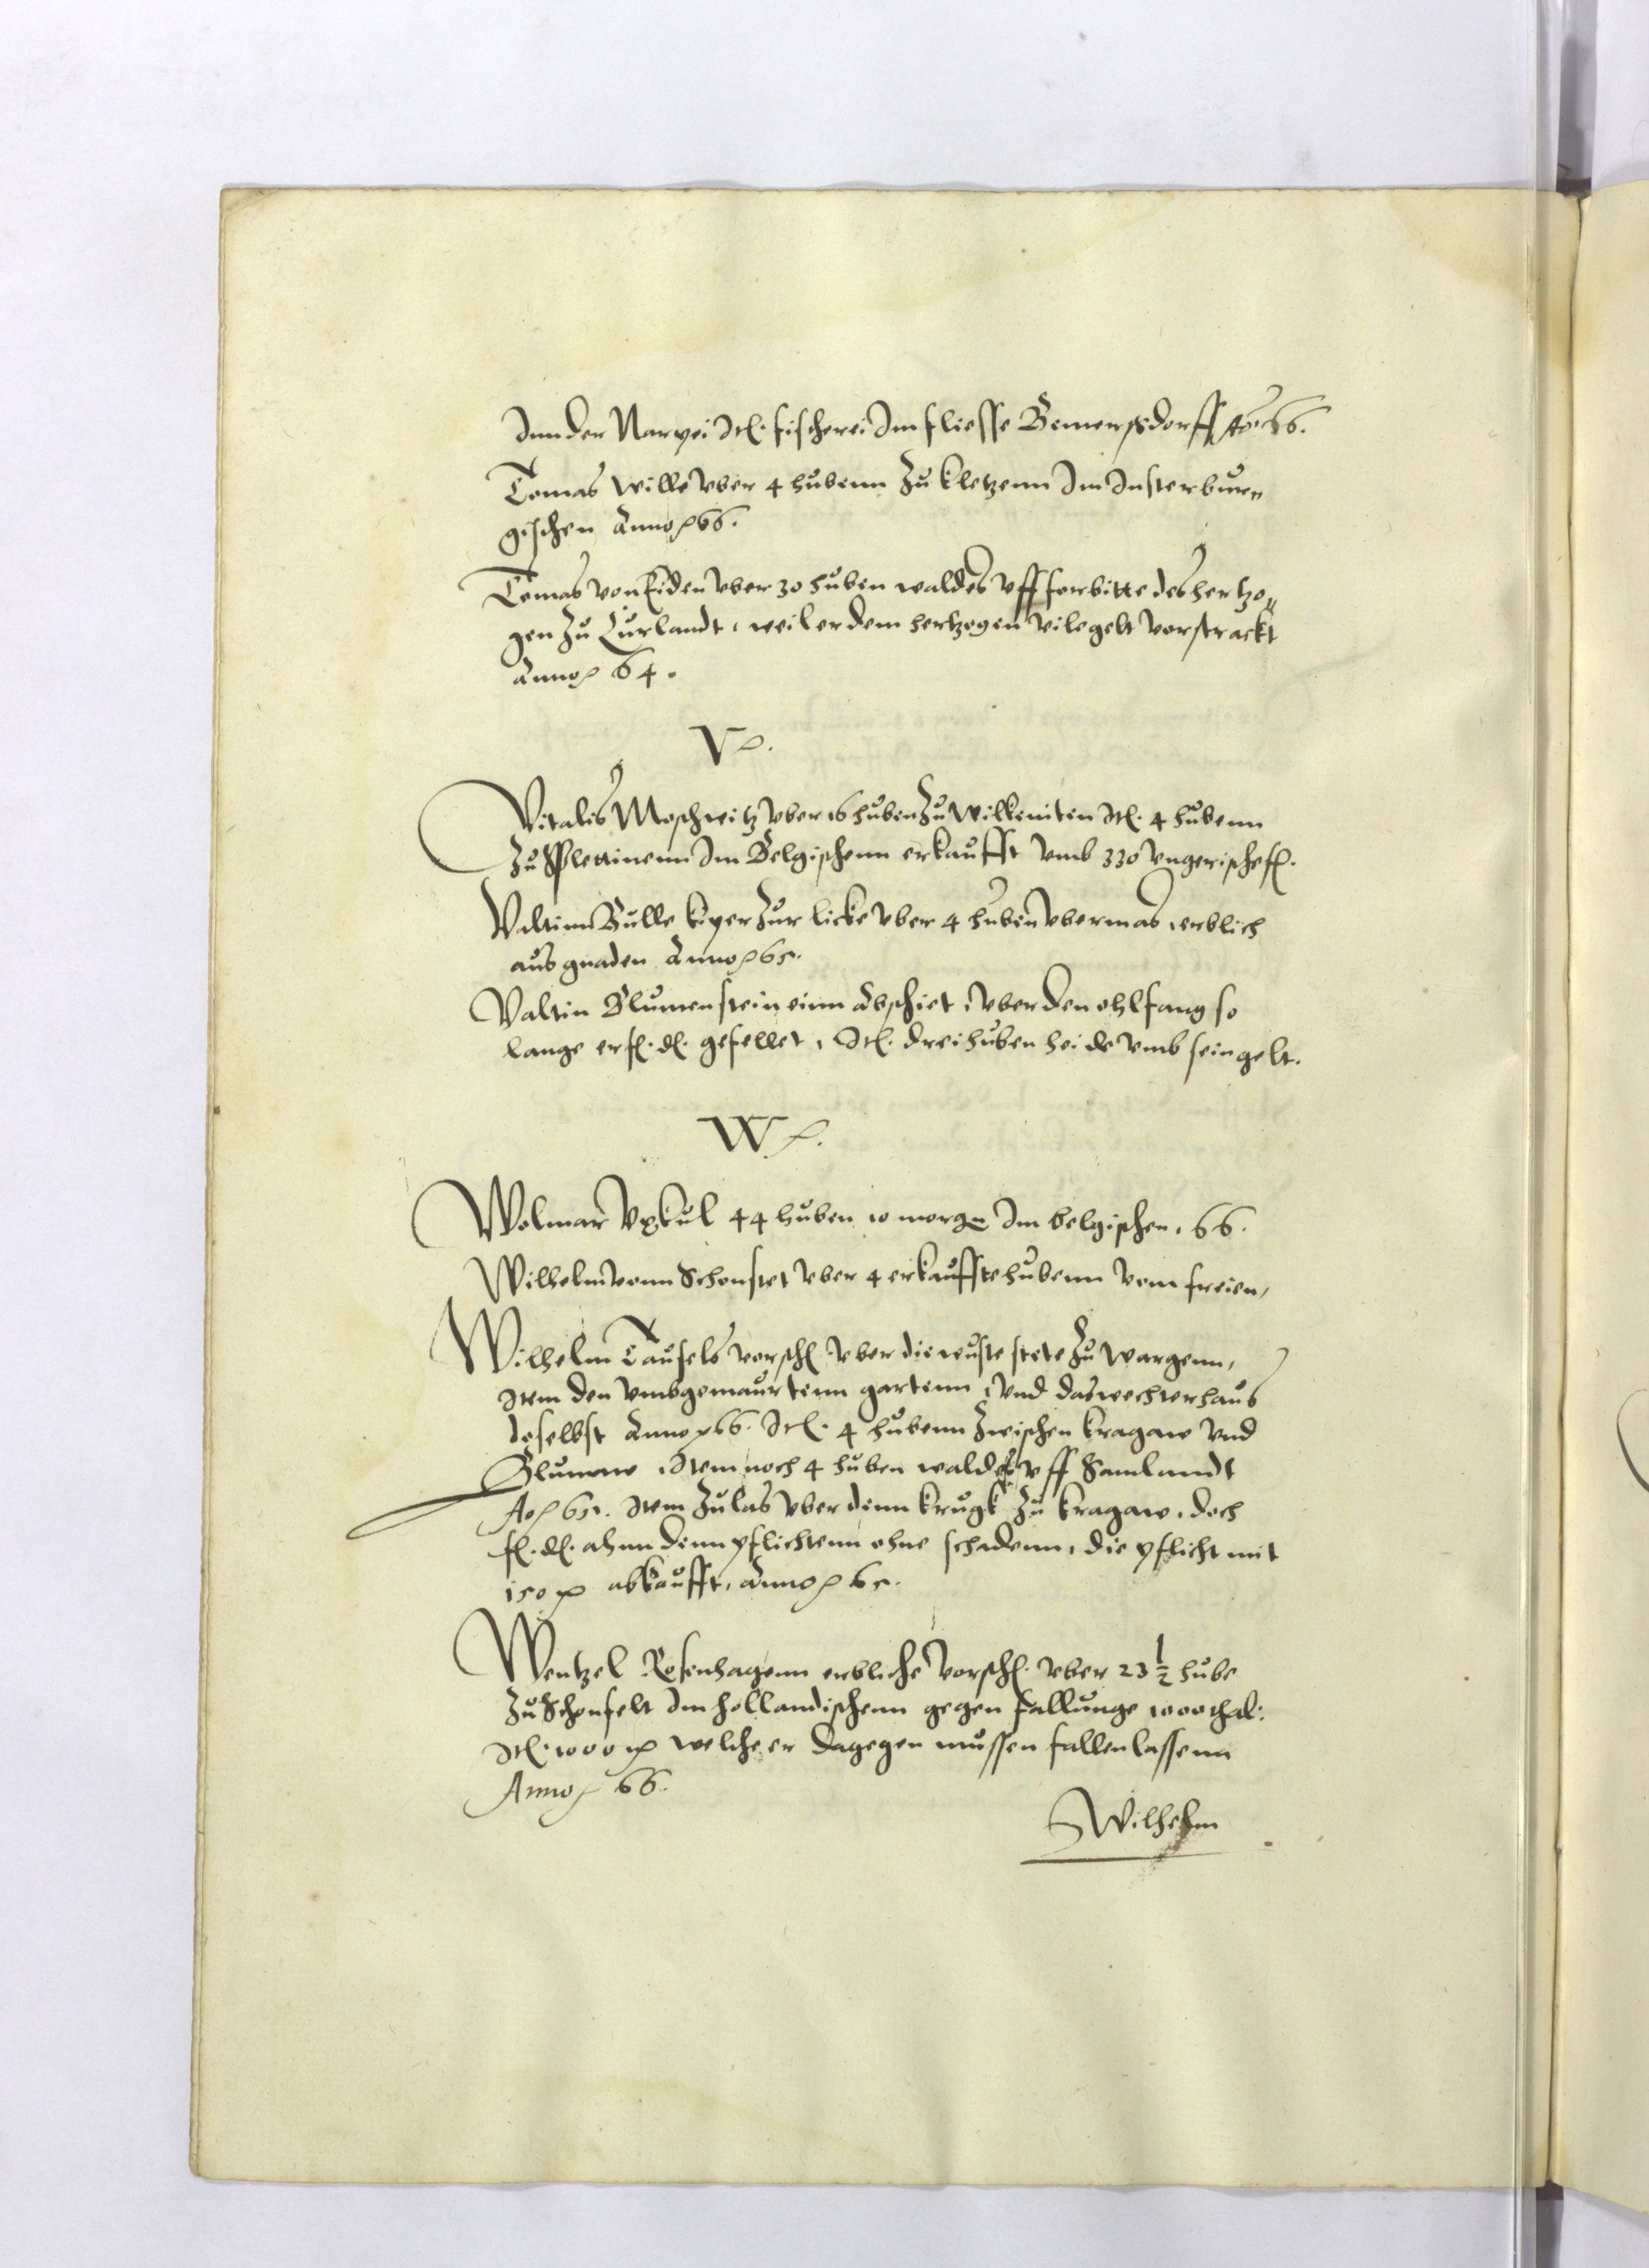 Inn der Narpei Itl. fischerei Im fliesse Bemersdorff Ao. 66.
Tomas Wille vber 4 hubenn zu Kletzenn Im Insterbur„
gischen Anno 66.
Tomas von Eiden vber 30 huben waldes vff forbitte des hertzo„
gen zu Curlandt, weil er dem hertzogen vile gelt vorstrackt
Anno 64.
V.
Vitalis Moschwitz vber 16 huben zu Willkeniten Itl. 4 hubenn
zu Splettinenn Im Belgischenn erkaufft vmb 330 vngerische fl.
Valtin Bulle kiper zur licke vber 4 huben vbermas, erblich
aus gnaden Anno 65.
Valtin Blumenstein einn abschiet, vber den ohlfang so
lange er f. d. gefellet, Itl. drei huben heide vmb sein gelt.
W.
Wolmar Vxkul 44 huben 10 morgen Im belgischen, 66.
Wilhelm vonn Schonstet vber 4 erkauffte hubenn vom freien,
Wilhelm Taufels vorsch. vber die wuste stete zu Wargenn,
Item den vmbgemaurtenn gartenn, vnd das wechterhaus
doselbst Anno 66. Itl. 4 hubenn zwischen Kragaw vnd
Blumaw, Item noch 4 huben waldes vff Samlandt
Ao 65. Item zulas vber denn krugk zu Kragaw, doch
f. d. ahnn denn pflichtenn ohne schadenn, die pflicht mit
150 abkaufft, Anno 65.
Wentzel Rosenhagenn erbliche vorsch. vber 23 1/2 hube
zu Schonfelt Im hollandischenn gegen fallunge 1000 thal:
Itl. 1000 welche er dagegen mussen fallen lassenn
Anno 66.
Wilhelm